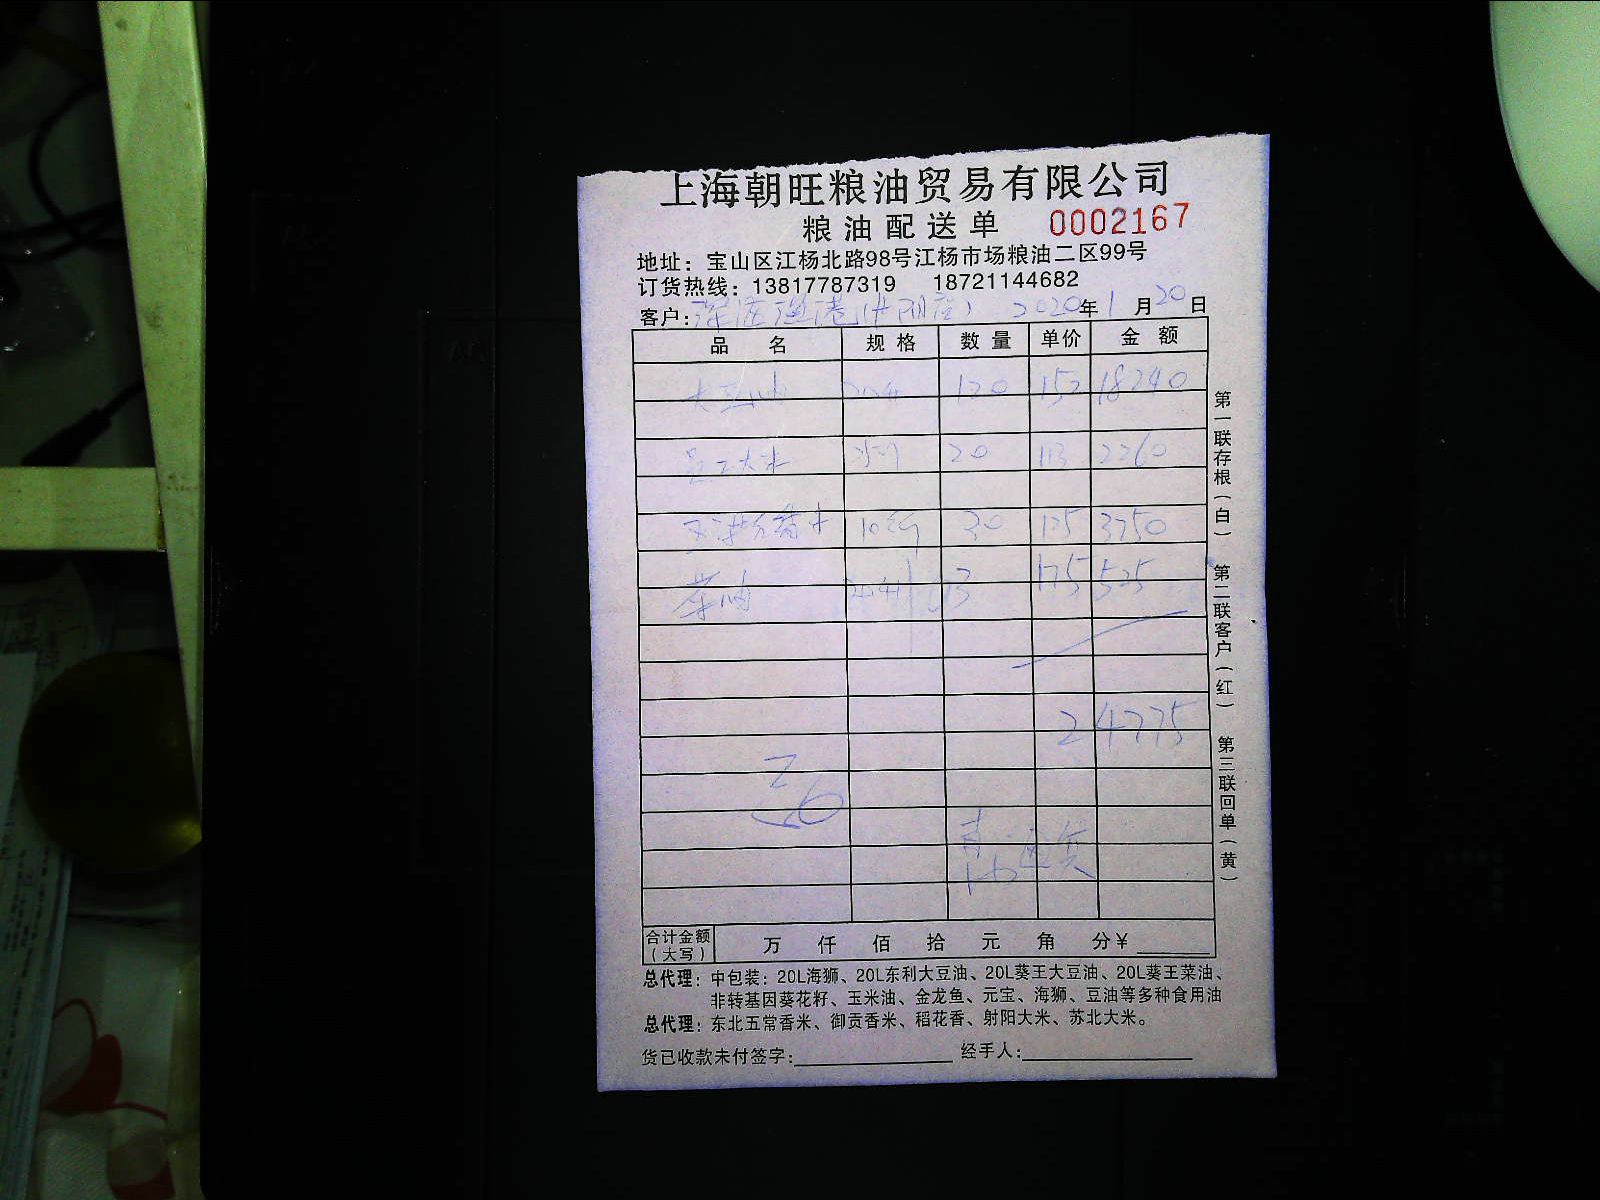 上海朝旺粮油贸易有限公司
粮油配送单 0002167
地址：宝山区江杨北路98号江杨市场粮油二区99号
订货热线：13817787319 18721144682
客户： 2020年1月20日
品名 规格 数量 单价 金额
大豆油 120 152 18240
员工大米 20 113 2260
10斤 30 125 3750
菜油 3 175 525
24775
合计金额（大写） 万 仟 佰 拾 元 角 分¥
总代理：中包装：20L海狮、20L东利大豆油、20L葵王大豆油、20L葵王菜油、
非转基因葵花籽、玉米油、金龙鱼、元宝、海狮、豆油等多种食用油
总代理：东北五常香米、御贡香米、稻花香、射阳大米、苏北大米。
货已收款未付签字： 经手人：
第一联存根（白） 第二联客户（红） 第三联回单（黄）